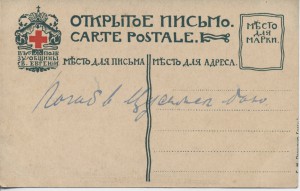 ОТКРЫТОЕ ПИСЬМО.
CARTE POSTALE.
МѢСТО ДЛЯ МАРКИ.
ВЪ ПОЛЬЗУ
ОБЩИНЫ
СВ. ЕВГЕНІИ
МѢСТО ДЛЯ ПИСЬМА
МѢСТО ДЛЯ АДРЕСА.
Погиб в Цусимском бою